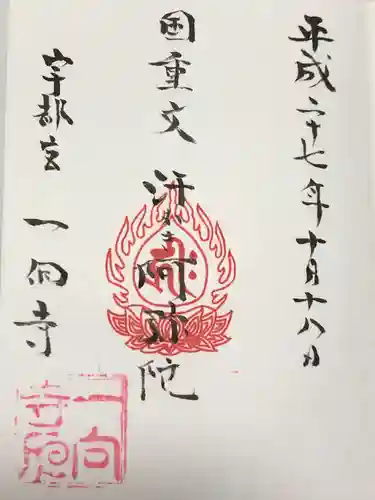 平成二十七年十月十八日
国重文
汗かき阿弥陀
宇都宮
一向寺
一向寺印